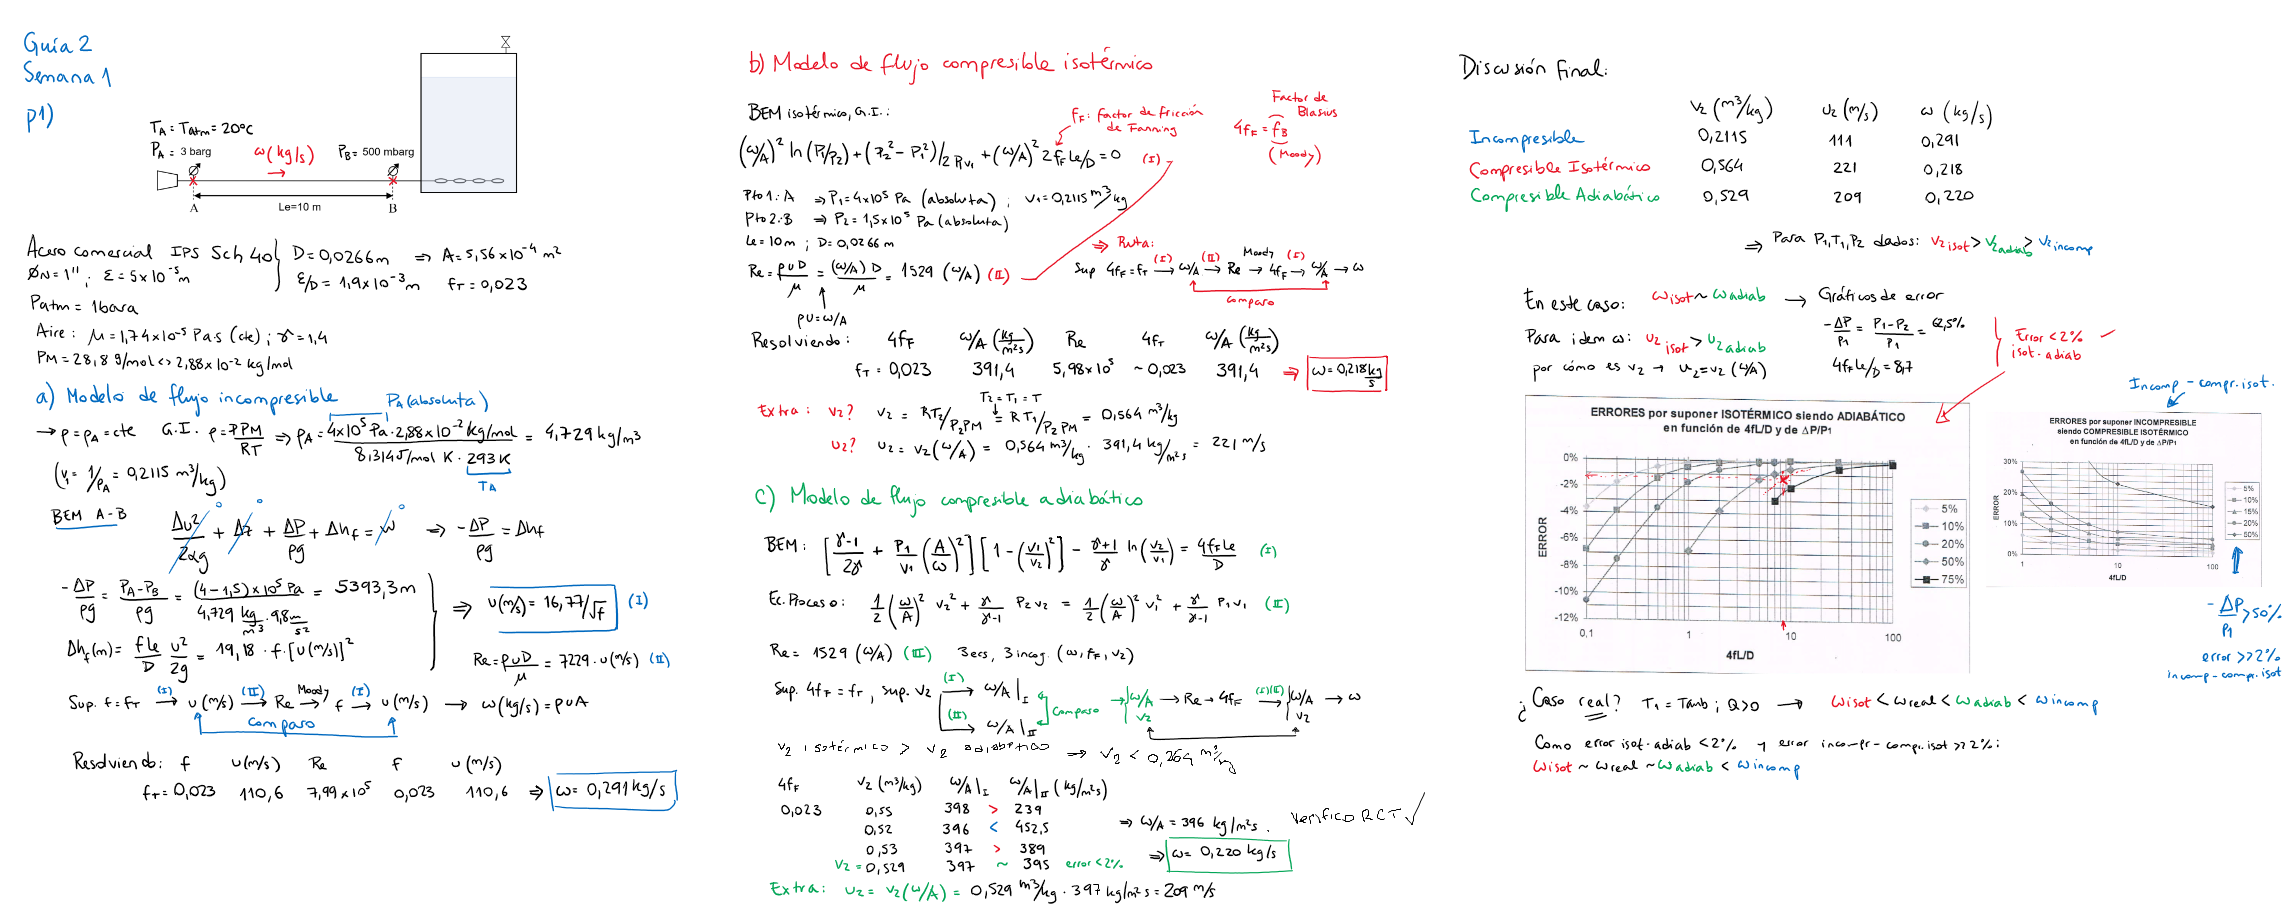 Guía 2
Semana 1
P1)
TA = Tatm = 20°C
PA = 3 barg
ω(kg/s)
PB = 500 mbarg
Le=10 m
A
B
Acero comercial IPS Sch 40
ØN = 1" ; ε = 5x10⁻⁵m
D = 0,0266m ⇒ A = 5,56x10⁻⁴ m²
ε/D = 1,9x10⁻³m fT = 0,023
Patm = 1bara
Aire: μ = 1,74x10⁻⁵ Pa.s (cte) ; γ = 1,4
PM = 28,8 g/mol <> 2,88x10⁻² kg/mol
a) Modelo de flujo incompresible
PA (absoluta)
→ ρ = ρA = cte G.I. ρ = P PM/RT ⇒ ρA = 4x10⁵ Pa . 2,88x10⁻² kg/mol / 8,314 J/mol K . 293 K = 4,729 kg/m³
TA
(v1 = 1/ρA = 0,2115 m³/kg)
BEM A-B
Δu²/2αg + Δz + ΔP/ρg + Δhf = w ⇒ -ΔP/ρg = Δhf
-ΔP/ρg = PA-PB/ρg = (4-1,5)x10⁵ Pa / 4,729 kg/m³ . 9,8 m/s² = 5393,3m
Δhf(m) = f Le/D u²/2g = 19,18 . f . [u(m/s)]²
⇒ u(m/s) = 16,77/√f (I)
Re = ρuD/μ = 7229 . u(m/s) (II)
Sup. f = fT →(I) u(m/s) →(II) Re →Moody f →(I) u(m/s) → ω(kg/s) = ρuA
Comparo
Resolviendo: f u(m/s) Re f u(m/s)
fT = 0,023 110,6 7,99x10⁵ 0,023 110,6 ⇒ ω = 0,291 kg/s
b) Modelo de flujo compresible isotérmico
BEM isotérmico, G.I.:
fF: factor de fricción de Fanning
Factor de Blasius
4fF = fB
(Moody)
(ω/A)² ln(P1/P2) + (P2² - P1²)/2P1v1 + (ω/A)² 2fF Le/D = 0 (I)
Pto 1: A ⇒ P1 = 4x10⁵ Pa (absoluta) ; v1 = 0,2115 m³/kg
Pto 2: B ⇒ P2 = 1,5x10⁵ Pa (absoluta)
Le = 10m ; D = 0,0266 m
Re = ρuD/μ = (ω/A) D/μ = 1529 (ω/A) (II)
ρu = ω/A
⇒ Ruta:
Sup 4fF = fT →(I) ω/A →(II) Re →Moody 4fF →(I) ω/A → ω
comparo
Resolviendo: 4fF ω/A (kg/m²s) Re 4fF ω/A (kg/m²s)
fT = 0,023 391,4 5,98x10⁵ ~0,023 391,4 ⇒ ω = 0,218 kg/s
T2 = T1 = T
Extra: v2? v2 = RT2/P2PM = RT1/P2PM = 0,564 m³/kg
u2? u2 = v2(ω/A) = 0,564 m³/kg . 391,4 kg/m²s = 221 m/s
c) Modelo de flujo compresible adiabático
BEM: [γ-1/2γ + P1/v1 (A/ω)²] [1 - (v1/v2)²] - γ+1/γ ln(v2/v1) = 4fF Le/D (I)
Ec. Proceso: 1/2 (ω/A)² v2² + γ/γ-1 P2v2 = 1/2 (ω/A)² v1² + γ/γ-1 P1v1 (II)
Re = 1529 (ω/A) (III) 3 ecs, 3 incog. (ω, fF, v2)
Sup. 4fF = fT, sup. v2 →(I) ω/A|I
→(II) ω/A|II
Comparo → ω/A v2 → Re → 4fF →(I)(II) ω/A v2 → ω
v2 isotérmico > v2 adiabático ⇒ v2 < 0,264 m³/kg
4fF v2 (m³/kg) ω/A|I ω/A|II (kg/m²s)
0,023 0,55 398 > 239
0,52 396 < 452,5
0,53 397 > 389
v2 = 0,529 397 ~ 395 error < 2%
⇒ ω/A = 396 kg/m²s. Verifico RCT ✓
⇒ ω = 0,220 kg/s
Extra: u2 = v2(ω/A) = 0,529 m³/kg . 397 kg/m²s = 209 m/s
Discusión final:
v2 (m³/kg) u2 (m/s) ω (kg/s)
Incompresible 0,2115 111 0,291
Compresible Isotérmico 0,564 221 0,218
Compresible Adiabático 0,529 209 0,220
⇒ Para P1,T1,P2 dados: v2 isot > v2 adiab > v2 incomp
En este caso: ωisot ~ ωadiab → Gráficos de error
Para idem ω: u2 isot > u2 adiab
por cómo es v2 → u2 = v2 (ω/A)
-ΔP/P1 = P1-P2/P1 = 62,5%
4fF Le/D = 8,7
Error < 2% isot-adiab
Incomp - compr. isot.
ERRORES por suponer ISOTÉRMICO siendo ADIABÁTICO
en función de 4fL/D y de ΔP/P1
0%
-2%
-4%
-6%
-8%
-10%
-12%
ERROR
0,1 1 10 100
4fL/D
5%
10%
20%
50%
75%
ERRORES por suponer INCOMPRESIBLE
siendo COMPRESIBLE ISOTÉRMICO
en función de 4fL/D y de ΔP/P1
30%
20%
10%
0%
ERROR
1 10 100
4fL/D
5%
10%
15%
20%
50%
-ΔP/P1 > 50%
error >> 2%
incomp - compr. isot
¿Caso real? T1 = Tamb ; Q>0 → ωisot < ωreal < ωadiab < ωincomp
Como error isot-adiab < 2% y error incompr - compr. isot >> 2%:
ωisot ~ ωreal ~ ωadiab < ωincomp